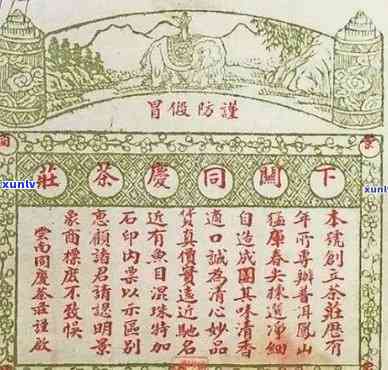 謹防假冒
下關同慶茶莊
本號創立茶莊歷有
年所專辦普洱鳳山
猛庫春尖揀選淨細
自造成圓其味清香
適口誠為清心妙品
貨真價實遠近馳名
近有魚目混珠特加
石印內票以示區別
惠顧諸君請認明景
象商標庶不致悞
雲南同慶茶莊謹啟
xunlv
xunlv